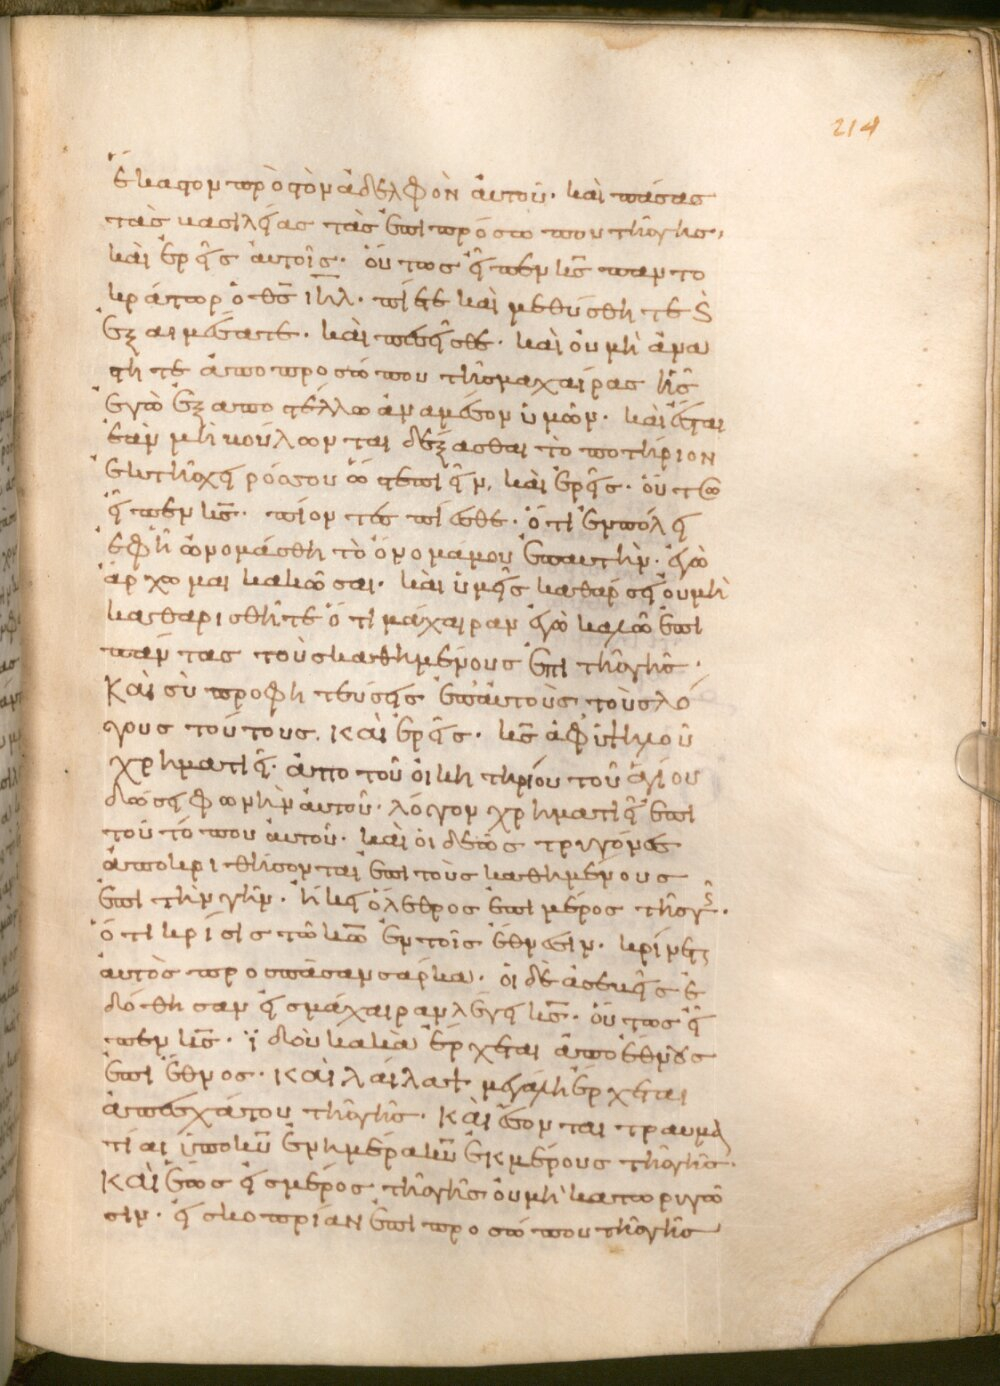 214
ἕκαστον πρὸς τὸν ἀδελφὸν αὐτοῦ· καὶ πάσας
τὰς βασιλείας τὰς ἐπὶ προσώπου τῆς γῆς,
καὶ ἐρεῖς αὐτοῖς· οὕτως εἶπεν κ̅ς̅ παντο
κράτωρ ὁ θ̅ς̅ ι̅η̅λ̅· πίετε καὶ μεθύσθητε ϗ
ἐξαιμέσατε· καὶ πεσεῖσθε· καὶ οὐ μὴ ἀνα
στῆτε ἀπὸ προσώπου τῆς μαχαίρας ἧς
ἐγὼ ἐξαποστέλλω ἀναμέσον ὑμῶν· καὶ ἔσται
ἐὰν μὴ βούλωνται δέξασθαι τὸ ποτήριον
ἐκ τῆς χειρός σου ὥστε πιεῖν, καὶ ἐρεῖς· οὕτω
εἶπεν κ̅ς̅· πιόντες πίεσθε· ὅτι ἐν πόλει
ἐφ' ἣ ὠνομάσθη τὸ ὄνομά μου ἐπ' αὐτὴν· ἐγὼ
ἄρχομαι κακῶσαι· καὶ ὑμεῖς καθάρσει οὐ μὴ
καθαρισθῆτε ὅτι μάχαιραν ἐγὼ καλῶ ἐπὶ
πάντας τοὺς καθημένους ἐπὶ τῆς γῆς·
Καὶ σὺ προφητεύσεις ἐπ' αὐτοὺς τοὺς λό
γους τούτους. καὶ ἐρεῖς· κ̅ς̅ ἀφ' ὑψηλοῦ
χρηματιεῖ· ἀπὸ τοῦ οἰκητηρίου τοῦ ἁγίου
δώσει φωνὴν αὐτοῦ· λόγον χρηματιεῖ ἐπὶ
τοῦ τόπου αὐτοῦ· καὶ οἱ δὲ ὡς τρυγῶντες
ἀποκριθήσονται ἐπὶ τοὺς καθημένους
ἐπὶ τὴν γῆν· ἥκει ὄλεθρος ἐπὶ μέρος τῆς γῆς·
ὅτι κρίσις τῷ κ̅ω̅ ἐν τοῖς ἔθνεσιν· κρίνεται
αὐτὸς πρὸς πᾶσαν σάρκα· οἱ δὲ ἀσεβεῖς ἐ
δόθησαν εἰς μάχαιραν λέγει κ̅ς̅· οὕτως εἶ
πεν κ̅ς̅· ἰδοὺ κακὰ ἔρχεται ἀπὸ ἔθνους
ἐπὶ ἔθνος· καὶ λαῖλαψ μεγάλη ἔρχεται
ἀπ' ἐσχάτου τῆς γῆς· καὶ ἔσονται τραυμα
τίαι ὑπὸ κ̅υ̅ ἐν ἡμέρα κ̅υ̅ ἐκ μέρους τῆς γῆς·
καὶ ἕως εἰς μέρος τῆς γῆς οὐ μὴ κατορυγῶ
σιν· εἰς κοπρίαν ἐπὶ προσώπου τῆς γῆς